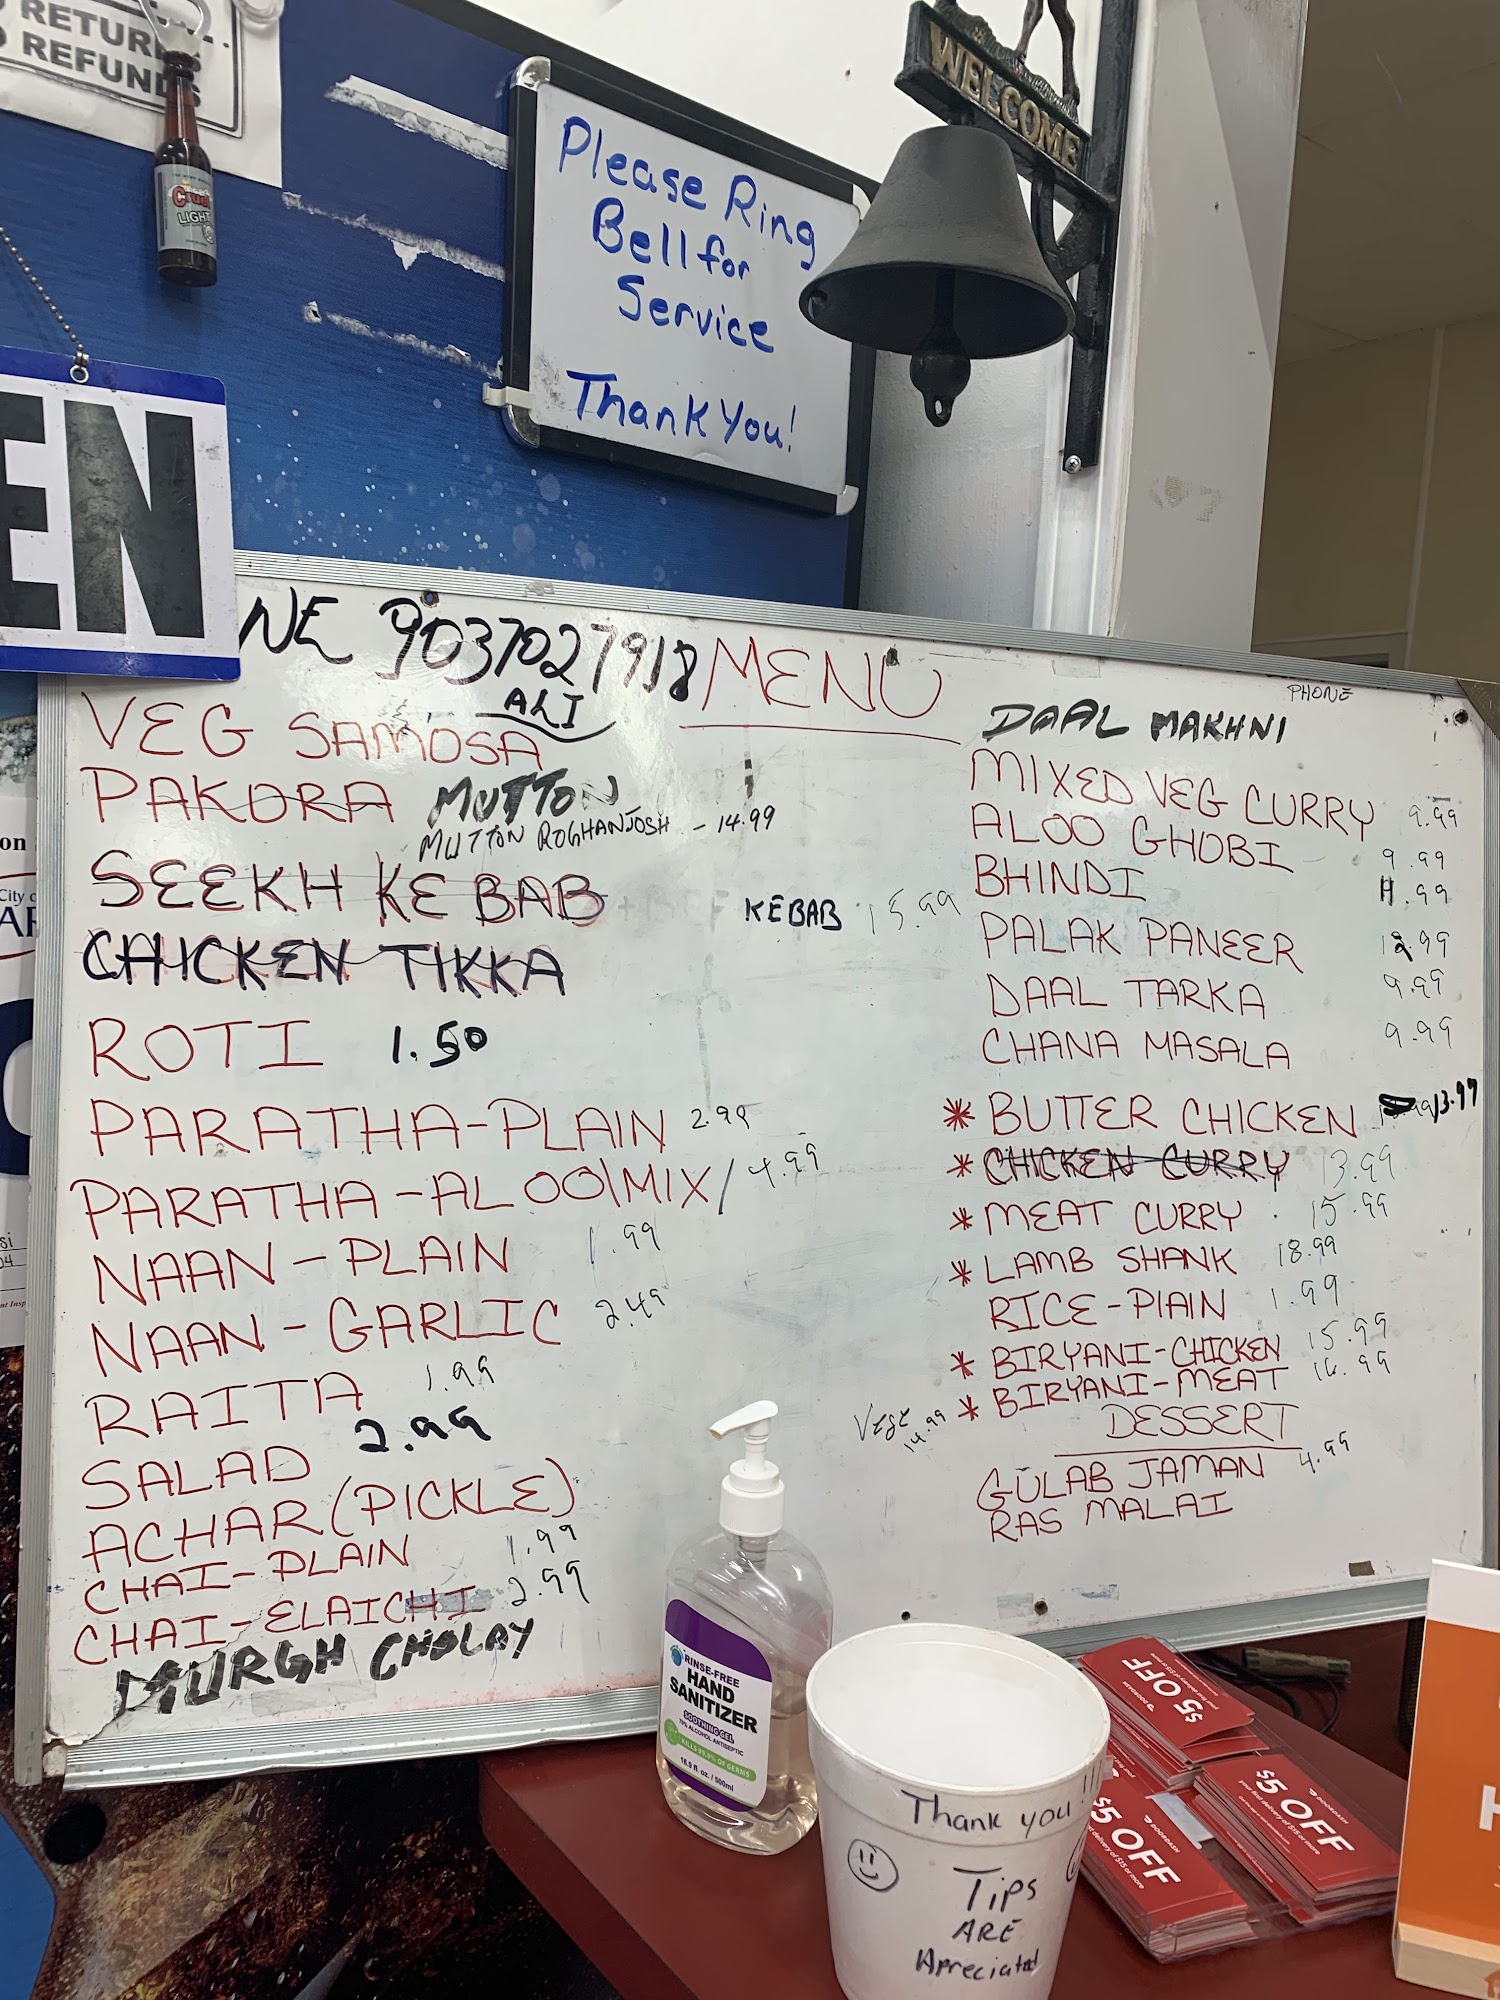 REFUND
LIGHT
EN
WELCOME
Please Ring
Bell for
Service
Thank You!
NE 9037027918
ALI
MENU
PHONE
VEG SAMOSA
PAKORA MUTTON
MUTTON ROGHANJOSH - 14.99
SEEKH KEBAB KEBAB 15.99
CHICKEN TIKKA
ROTI 1.50
PARATHA-PLAIN 2.99
PARATHA-ALOO\MIX/ 4.99
NAAN-PLAIN 1.99
NAAN-GARLIC 2.49
RAITA 1.99
SALAD 2.99
ACHAR (PICKLE)
CHAI-PLAIN 1.99
CHAI-ELAICHI 2.99
MURGH CHOLAY
DAAL MAKHNI
MIXED VEG CURRY 9.99
ALOO GHOBI 9.99
BHINDI 11.99
PALAK PANEER 12.99
DAAL TARKA 9.99
CHANA MASALA 9.99
* BUTTER CHICKEN 13.99
* CHICKEN CURRY 13.99
* MEAT CURRY 15.99
* LAMB SHANK 18.99
RICE-PLAIN 1.99
* BIRYANI-CHICKEN 15.99
* BIRYANI-MEAT 16.99
Vege 14.99
DESSERT
GULAB JAMAN 4.99
RAS MALAI
RINSE-FREE
HAND
SANITIZER
SOOTHING GEL
70% ALCOHOL ANTISEPTIC
KILLS 99.9% OF GERMS
16.9 fl. oz. / 500ml
Thank you!!
Tips
ARE
Apreciated
$5 OFF
$5 OFF
your first delivery of $15 or more
DOORDASH
$5 OFF
DOORDASH